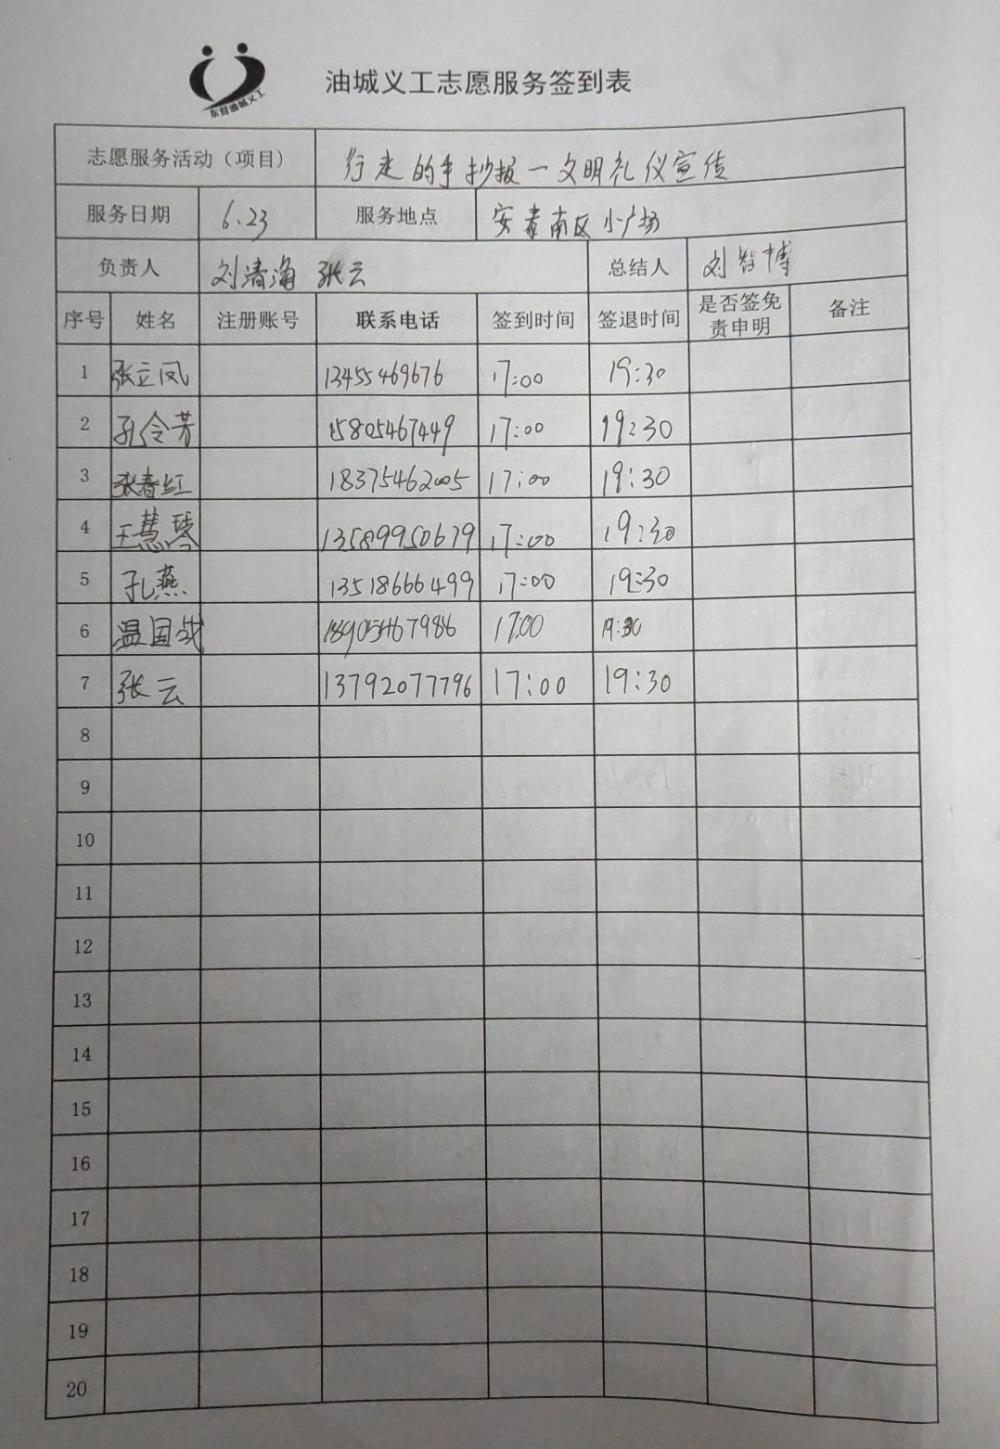 东营油城义工
油城义工志愿服务签到表
志愿服务活动（项目） 行走的手抄报一文明礼仪宣传
服务日期 6.23 服务地点 安泰南区小广场
负责人 刘清海 张云 总结人 刘智博
序号 姓名 注册账号 联系电话 签到时间 签退时间 是否签免责申明 备注
1 张立凤 13455469676 17:00 19:30
2 孔令芳 15805467449 17:00 19:30
3 张春红 18375462005 17:00 19:30
4 王慧琴 13589950679 17:00 19:30
5 孔燕 13518666499 17:00 19:30
6 温国 18905467986 17:00 19:30
7 张云 13792077796 17:00 19:30
8
9
10
11
12
13
14
15
16
17
18
19
20